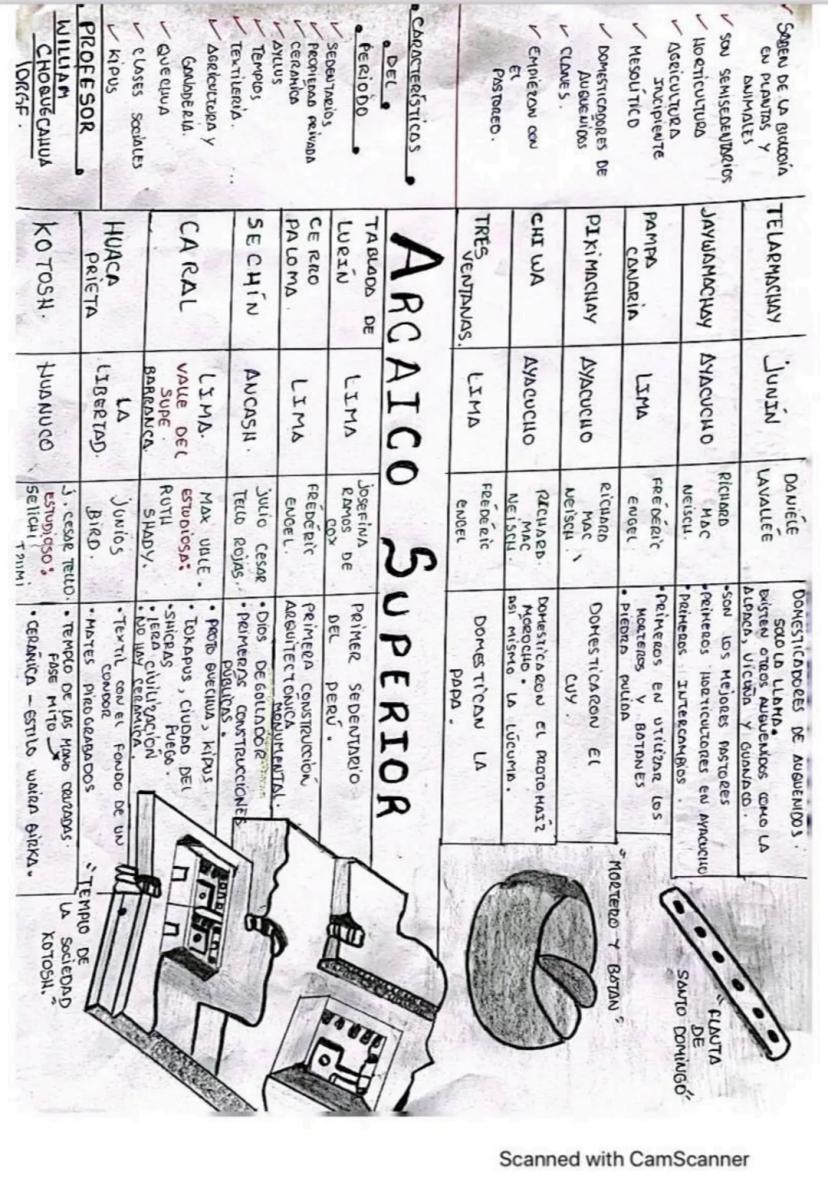 ✓ SABEN DE LA BIOLOGÍA
EN PLANTAS Y
ANIMALES
✓ SON SEMISEDENTARIOS
✓ HORTICULTURA
✓ AGRICULTURA
INCIPIENTE
✓ MESOLÍTICO
✓ DOMESTICADORES DE
AUQUENIDOS
✓ CLANES.
✓ EMPIEZAN CON
EL
PASTOREO.
TELARMACHAY
JUNÍN
DANIÉLE
LAVALLÉE
DOMESTICADORES DE AUQUENIDOS.
SOLO LA LLAMA.
EXISTEN OTROS AUQUENIDOS COMO LA
ALPACA, VICUÑA Y GUANACO.
JAYWAMACHAY
AYACUCHO
RICHARD
MAC
NEISCH.
• SON LOS MEJORES PASTORES
• PRIMEROS HORTICULTORES EN AYACUCHO
• PRIMEROS INTERCAMBIOS.
PAMPA
CANARIA
LIMA
FREDÉRIC
ENGEL
• PRIMEROS EN UTILIZAR LOS
MORTEROS Y BATANES
• PIEDRA PULIDA
PIKIMACHAY
AYACUCHO
RICHARD
MAC
NEISCH.
DOMESTICARON EL
CUY.
CHIWA
AYACUCHO
RICHARD.
MAC
NEISCH.
DOMESTICARON EL PROTO MAÍZ
MOROCHO.
ASÍ MISMO LA LÚCUMA.
TRES
VENTANAS.
LIMA
FRÉDÉRIC
ENGEL
DOMESTICAN LA
PAPA.
"FLAUTA
DE
SANTO DOMINGO"
"MORTERO Y BATAN"
ARCAICO SUPERIOR
• CARACTERÍSTICAS •
• DEL •
• PERIODO •
✓ SEDENTARIOS
✓ PROPIEDAD PRIVADA
✓ CERÁMICA
✓ AYLLUS
✓ TEMPLOS
✓ TEXTILERIA. ...
✓ AGRICULTURA Y
GANADERÍA.
✓ QUECHUA
✓ CLASES SOCIALES
✓ KIPUS
• PROFESOR •
WILLIAM
CHOQUECAHUA
JORGE.
TABLADA DE
LURÍN
LIMA
JOSEFINA
RAMOS DE
COX
PRIMER SEDENTARIO
DEL PERÚ.
CERRO
PALOMA.
LIMA
FRÉDÉRIC
ENGEL
PRIMERA CONSTRUCCIÓN
ARQUITECTONICA
MONUMENTAL.
SECHÍN
ANCASH.
JULIO CESAR
TELLO ROJAS.
• DIOS DEGOLLADOR
• PRIMERAS CONSTRUCCIONES
PÚBLICAS.
CARAL
LIMA.
VALLE DEL
SUPE
BARRANCA.
MAX UHLE.
ESTUDIOSA:
RUTH
SHADY.
• PROTO QUECHUA, KIPUS
• TOKAPUS, CIUDAD DEL
FUEGO.
• SHICRAS
• 1ERA CIVILIZACIÓN
• NO HAY CERÁMICA.
HUACA
PRIETA
LA
LIBERTAD.
JUNIOS
BIRD.
• TEXTIL CON EL FONDO DE UN
CONDOR
• MATES PIROGRABADOS
KOTOSH.
HUANUCO
J. CESAR TELLO.
ESTUDIOSO:
SEIICHI IZUMI
• TEMPLO DE LAS MANO CRUZADAS.
FASE MITO
• CERÁMICA - ESTILO WAIRA GIRKA.
"TEMPLO DE
LA SOCIEDAD
KOTOSH."
Scanned with CamScanner